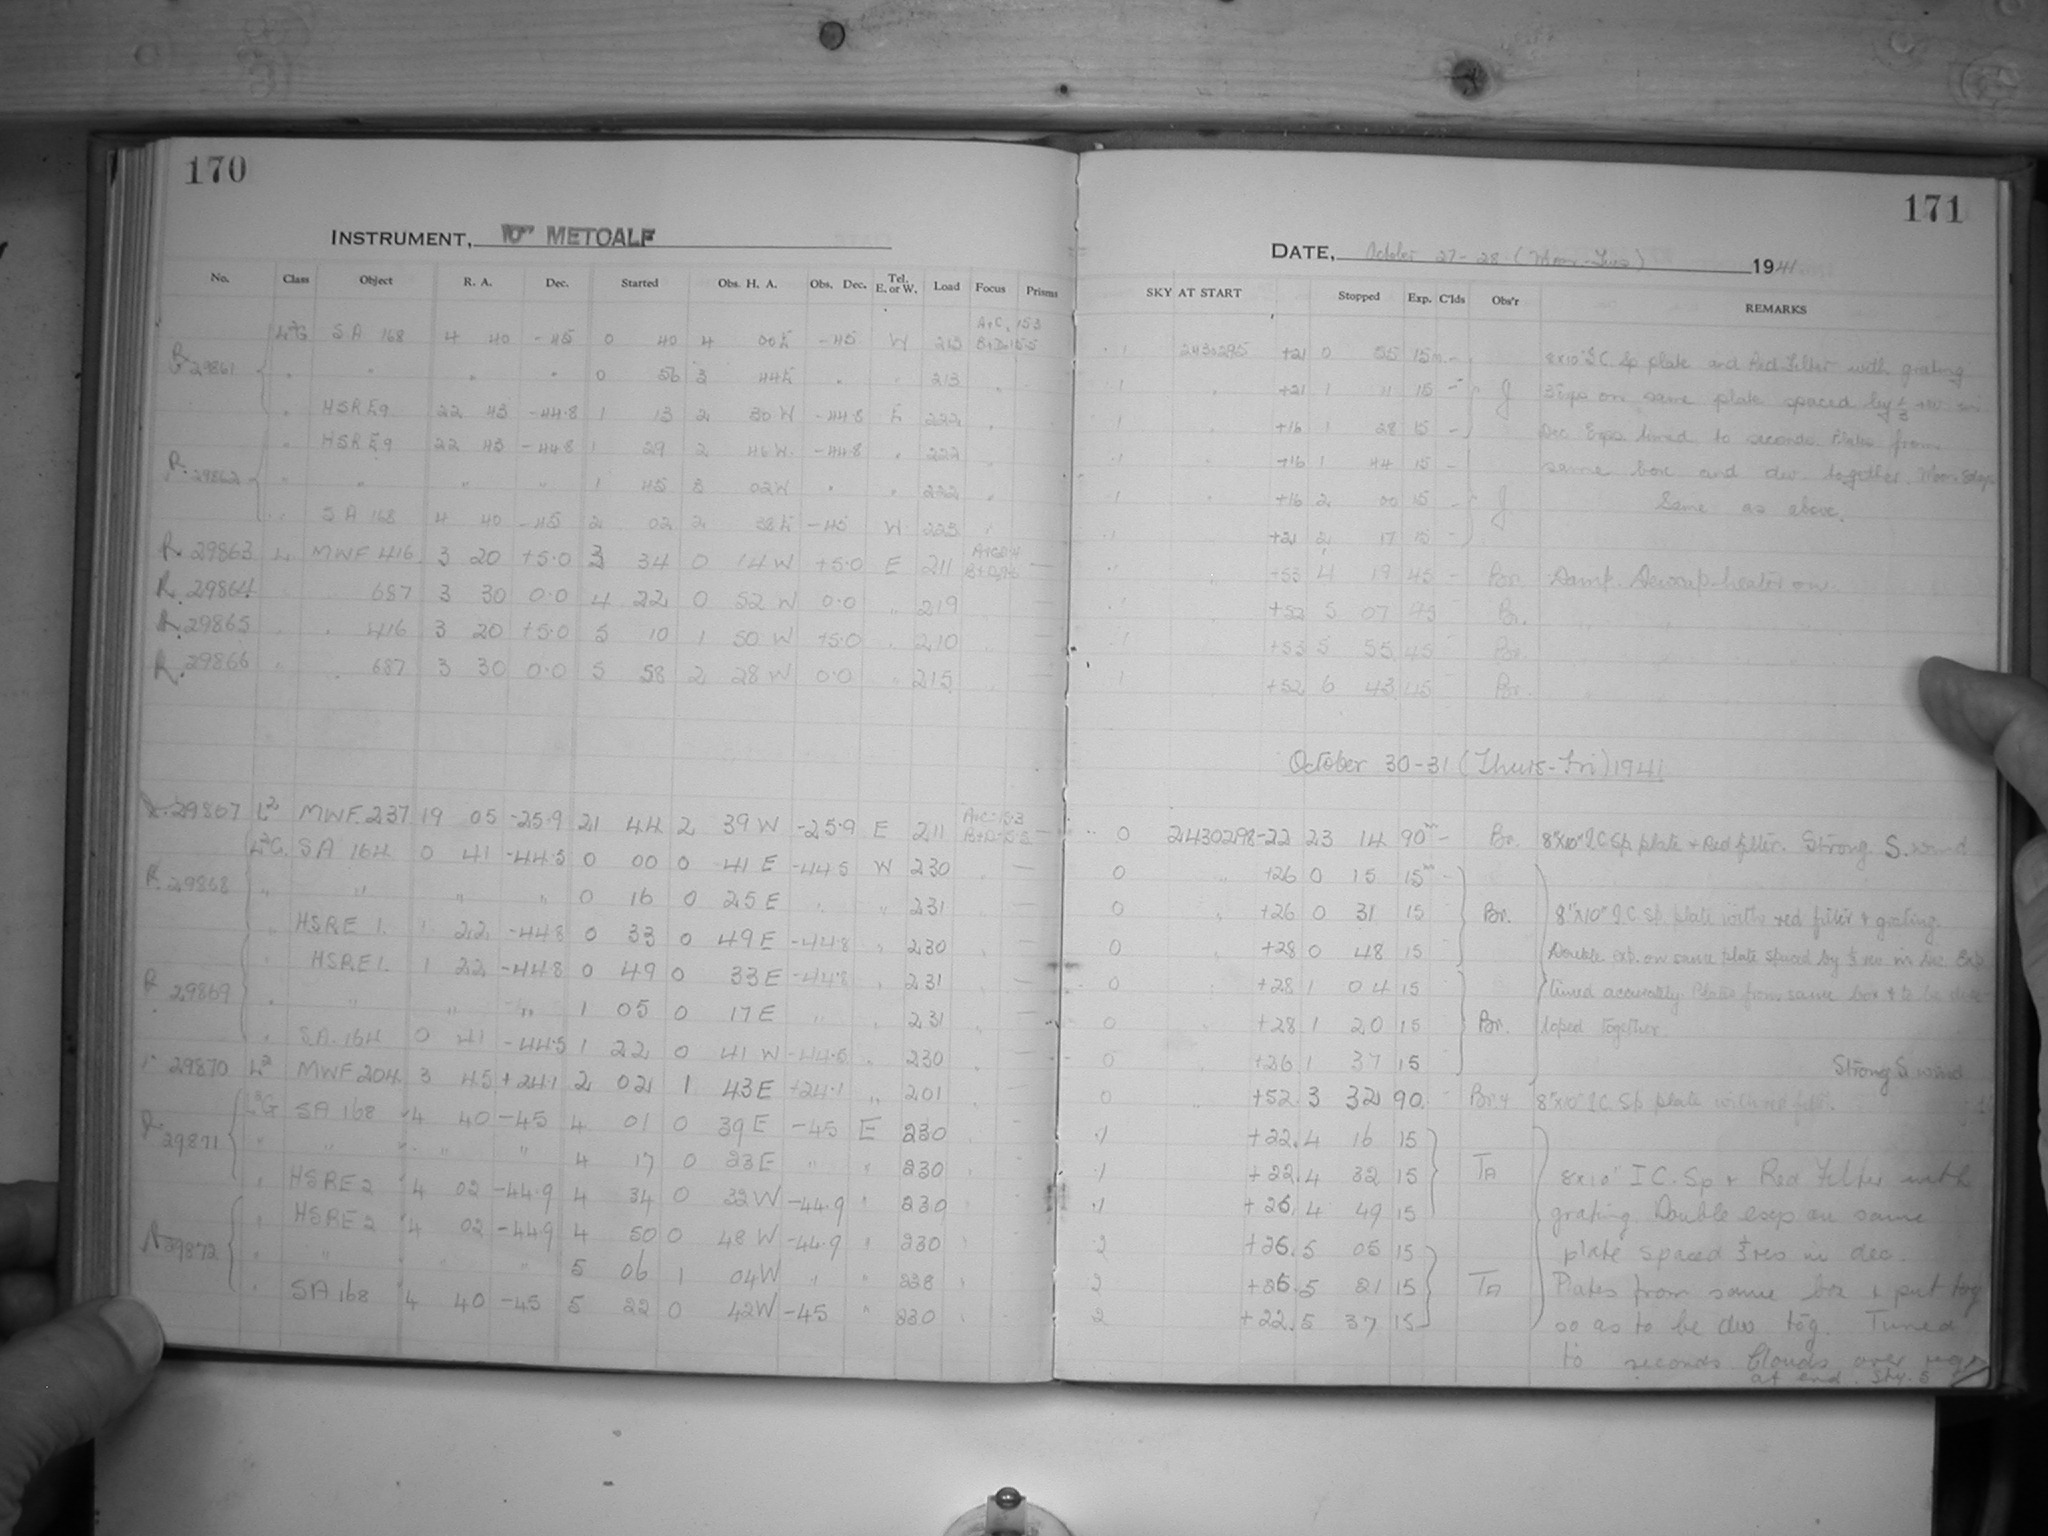 170
INSTRUMENT, 10" METCALF
No. Class Object R. A. Dec. Started Obs. H. A. Obs. Dec. Tel. E. or W. Load Focus Prisms
L²G SA 168 4 40 -45 0 40 4 00E -45 W 213 A+C, 15.3 B+D=15.5
29861 " " " " 0 56 3 44E " " 213
" HSRE9 22 43 -44.8 1 13 2 30W -44.8 E 222
" HSRE9 22 43 -44.8 1 29 2 46W -44.8 " 222
29862 " " " " 1 45 3 02W " " 222
" SA 168 4 40 -45 2 02 2 38E -45 W 223
R. 29863 L MWF 416 3 20 +5.0 3 34 0 14W +5.0 E 211
R. 29864 687 3 30 0.0 4 22 0 52W 0.0 " 219
R. 29865 416 3 20 +5.0 5 10 1 50W +5.0 210
R. 29866 687 3 30 0.0 5 58 2 28W 0.0 215
29867 L² MWF 237 19 05 -25.9 21 44 2 39W -25.9 E 211 A+C=15.3 B+D=15.5
L²G SA 164 0 41 -44.5 0 00 0 41E -44.5 W 230
R 29868 " " " " 0 16 0 25E " " 231
" HSRE 1. 1 22 -44.8 0 33 0 49E -44.8 " 230
" HSRE1. 1 22 -44.8 0 49 0 33E -44.8 " 231
R 29869 " " " " 1 05 0 17E " " 231
" SA 164 0 41 -44.5 1 22 0 41W -44.5 " 230
29870 L² MWF 204 3 45 +24.1 2 02 1 43E +24.1 " 201
L²G SA 168 4 40 -45 4 01 0 39E -45 E 230
29871 " " " " " 4 17 0 23E " " 230
" HSRE2 4 02 -44.9 4 34 0 32W -44.9 " 230
" HSRE2 4 02 -44.9 4 50 0 48W -44.9 " 230
29872 " " " " 5 06 1 04W " " 228
" SA 168 4 40 -45 5 22 0 42W -45 " 230
171
DATE, October 27-28 (Mon-Tues) 1941
SKY AT START Stopped Exp. C'lds Obs'r REMARKS
1 2430295 +21 0 55 15m - 8x10" I.C. Sp plate and Red Filter with grating
1 " +21 1 11 15 - J on same plate spaced by
1 " +16 1 28 15 - Dec Exps timed to seconds Plates from
1 " +16 1 44 15 - same box and dev. together.
1 " +16 2 00 15 - J Same as above.
1 " +21 2 17 15 -
+53 4 19 45 - Br. Damp. Dewcap-heater on.
+52 5 07 45 Br. " " "
1 +53 5 55 45 Br. " " "
1 +52 6 43 45 Br. " " "
October 30-31 (Thurs-Fri) 1941
0 2430298 -22 23 14 90m - Br. 8"x10" I.C Sp plate + Red filter. Strong S. wind
0 " +26 0 15 15m -
0 " +26 0 31 15 Br. 8"x10" I.C. Sp. plate with red filter & grating.
0 +28 0 48 15 Double exp. on same plate spaced by ⅓ rev in dec. Exp
0 +28 1 04 15 timed accurately. Plates from same box & to be deve-
0 " +28 1 20 15 Br. loped together.
0 +26 1 37 15 Strong S wind
0 " +52 3 32 90 8"x10" I.C. Sp plate with red filt.
.1 +22 4 16 15
.1 +22 4 32 15 TA 8x10" I C. Sp + Red Filter with
.1 +26 4 49 15 grating Double exp on same
.2 +26 5 05 15 plate spaced ⅓ rev in dec.
2 +26 5 21 15 TA Plates from same box & put tog
2 +22 5 37 15 so as to be dev tog. Timed
to seconds Clouds over
at end. Sky. 5